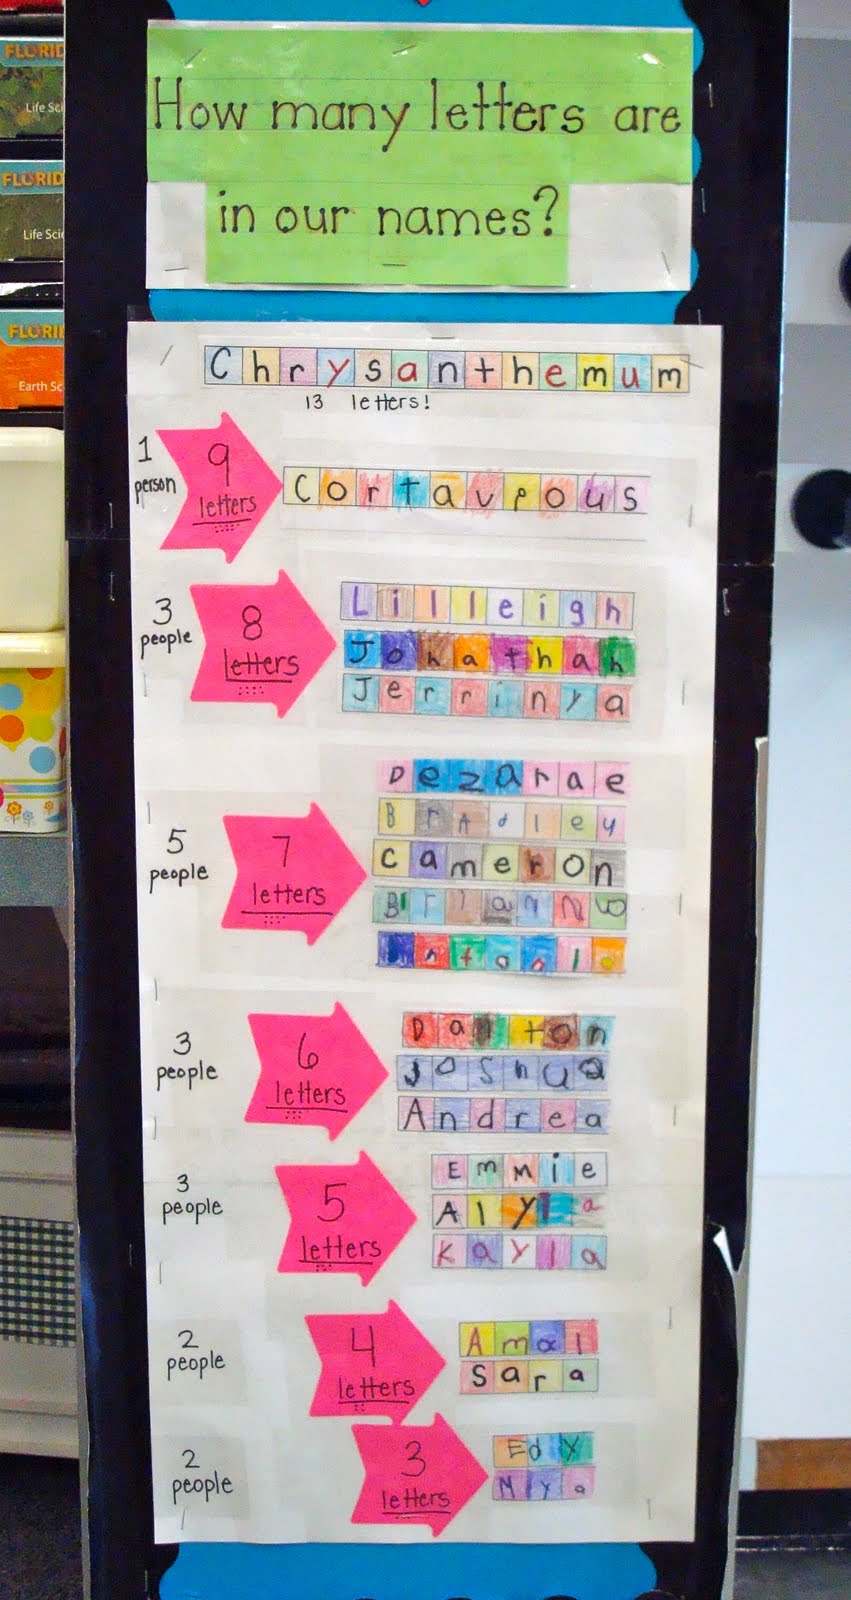 FLORID
Life Sci
FLORID
Life Scie
FLORID
Earth Sc
How many letters are
in our names?
Chrysanthemum
13 letters!
1 person
9 letters
Cortaveous
3 people
8 letters
Lilleigh
Jonathan
Jerrinya
5 people
7 letters
Dezarae
BrAdley
cameron
Brianna
Antonio
3 people
6 letters
Joshua
Andrea
3 people
5 letters
Emmie
Kayla
2 people
4 letters
Amal
Sara
2 people
3 letters
Edy
Mya